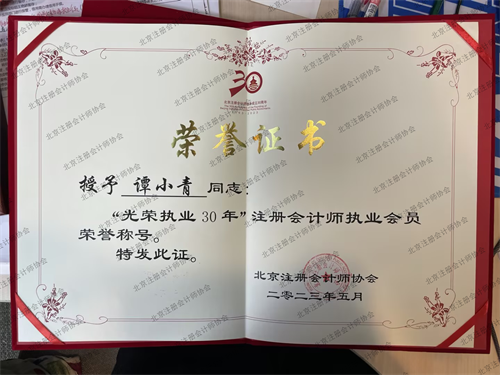 30
荣誉证书
授予 谭小青 同志:
“光荣执业30年”注册会计师执业会员
荣誉称号。
特发此证。
北京注册会计师协会
二〇二三年五月
北京注册会计师协会